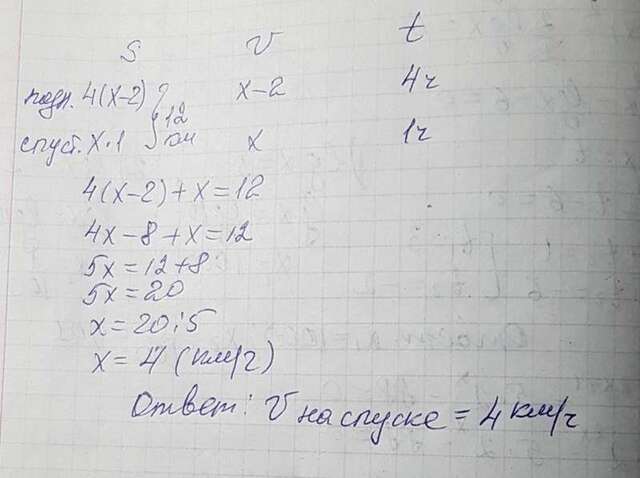 S V t
подн. 4(x-2) } x-2 4ч
12 км
спуст. x·1 x 1ч
4(x-2)+x=12
4x-8+x=12
5x=12+8
5x=20
x=20:5
x=4 (км/ч)
Ответ: V на спуске = 4 км/ч